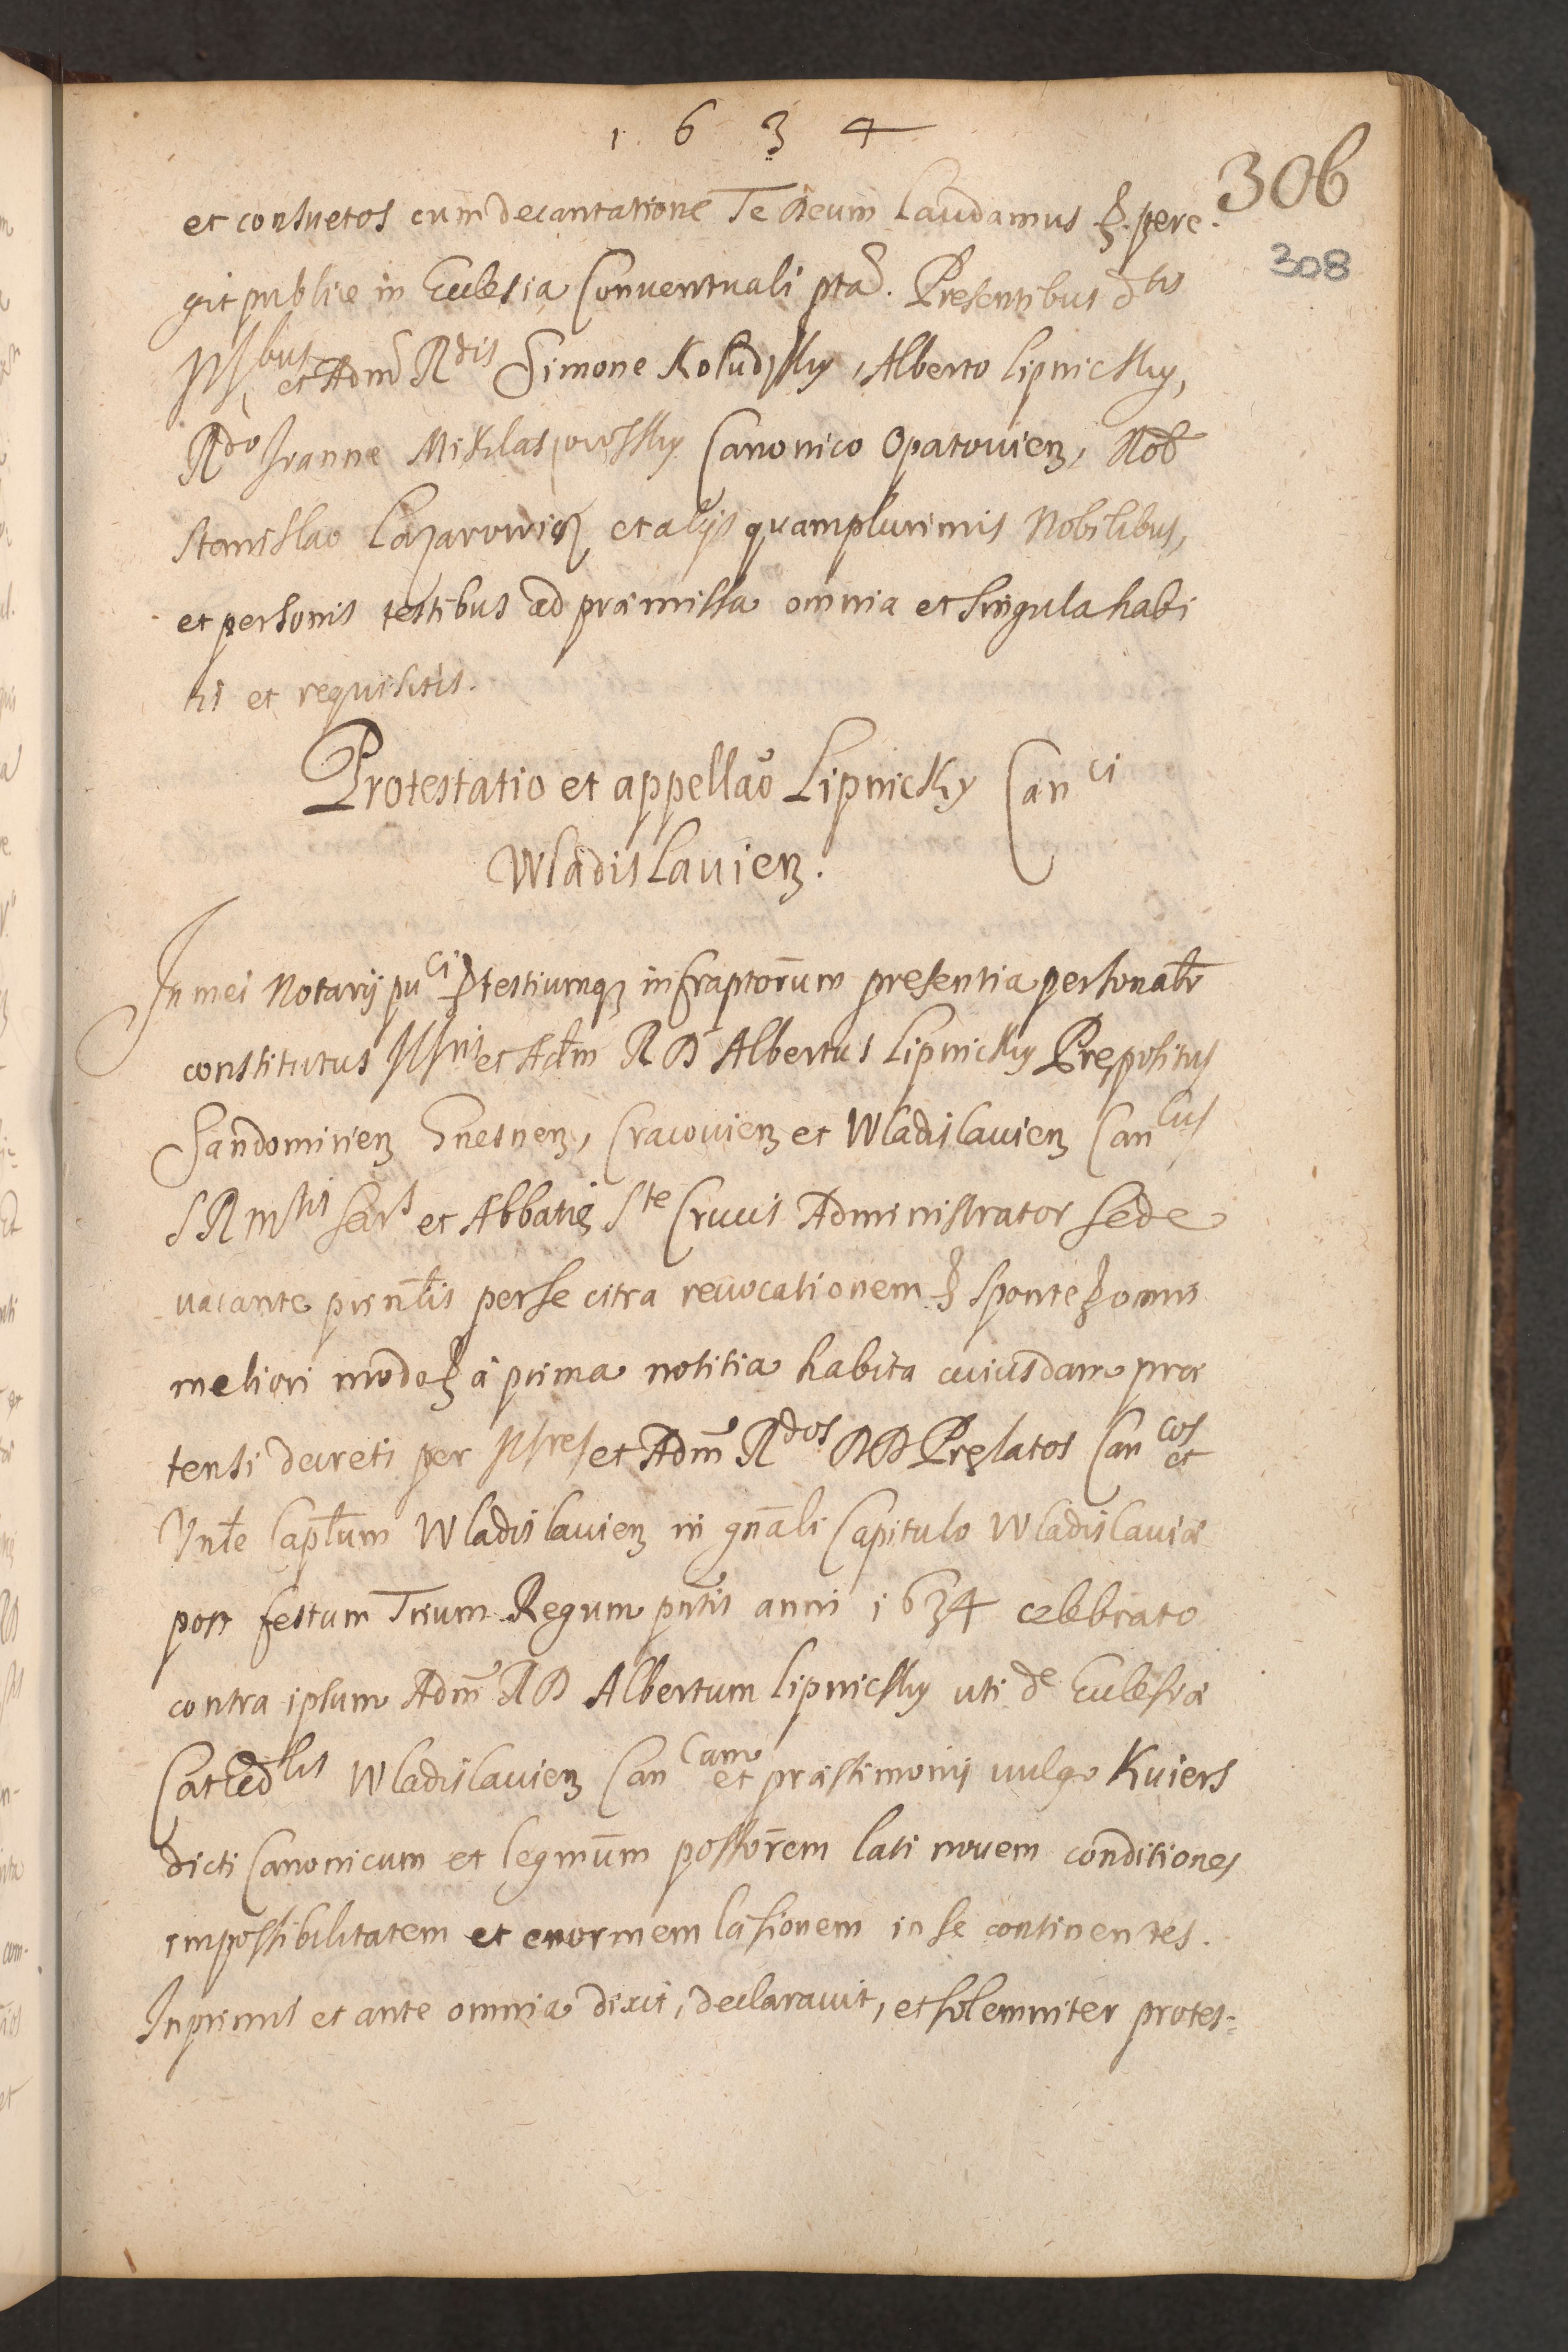 1 6 3 4
306
308
et consuetos cum decantatione Te Deum Laudamus etc. pere
git publice in Ecclesia Conventuali pta. Presentibus dtis
Illbus et Adm Rdis Simone Koludzky, Alberto Lipnicky,
Rdo Joanne Miklaszowsky Canonico Opatovien, Nob
Stanislao Lazarowicz et alijs quamplurimis Nobilibus,
et personis testibus ad præmissa omnia et singula habi
ti et requisitis.
Protestatio et appellao Lipnicky Canci
Wladislavien.
In mei Notarij puci etc testiumq infraptorum presentia personaltr
constitutus Illris et Adm R D Albertus Lipnicky Prepositus
Sandomirien Gnesnen, Cracovien et Wladislavien Cancus
S R Mtis Secrs et Abbatię Ste Crucis Administrator sede
vacante prientis per se citra revocationem etc sponte etc omni
meliori modo etc a prima notitia habita cuiusdam præ
tensi decreti per Illres et Adm Rdos DD Prelatos Cancos et
Vnte Captum Wladislavien in gnali Capitulo Wladislaviæ
post festum Trium Regum pntis anni 1634 celebrato
contra ipsum Adm R D Albertum Lipnicky uti de Ecclesiæ
Cathedlis Wladislavien Cancum et præstimonij vulgo Kuiers
dicti Canonicum et legmum possorem lati novem conditiones
impossibilitatem et enormem læsionem in se continentes.
Inprimis et ante omnia dixit, declaravit, et solemniter protes=